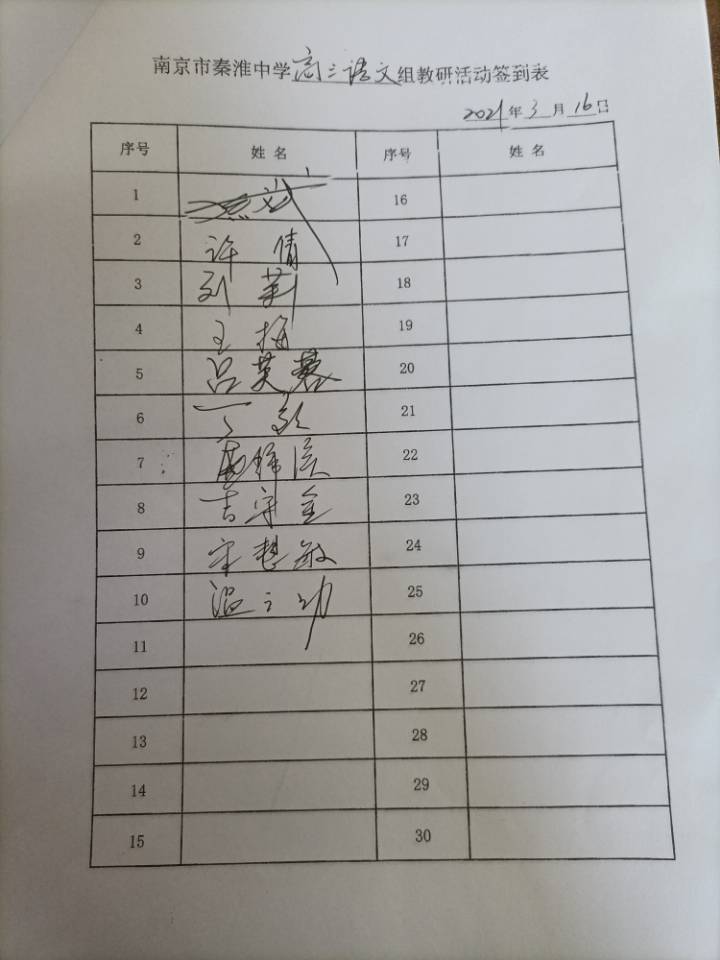 南京市秦淮中学高三语文组教研活动签到表
2021年3月16日
序号 姓名 序号 姓名
1 16
2 许倩 17
3 刘莉 18
4 王梅 19
5 吕英慕 20
6 丁 21
7 22
8 吉守金 23
9 宋慧敏 24
10 温立功 25
11 26
12 27
13 28
14 29
15 30